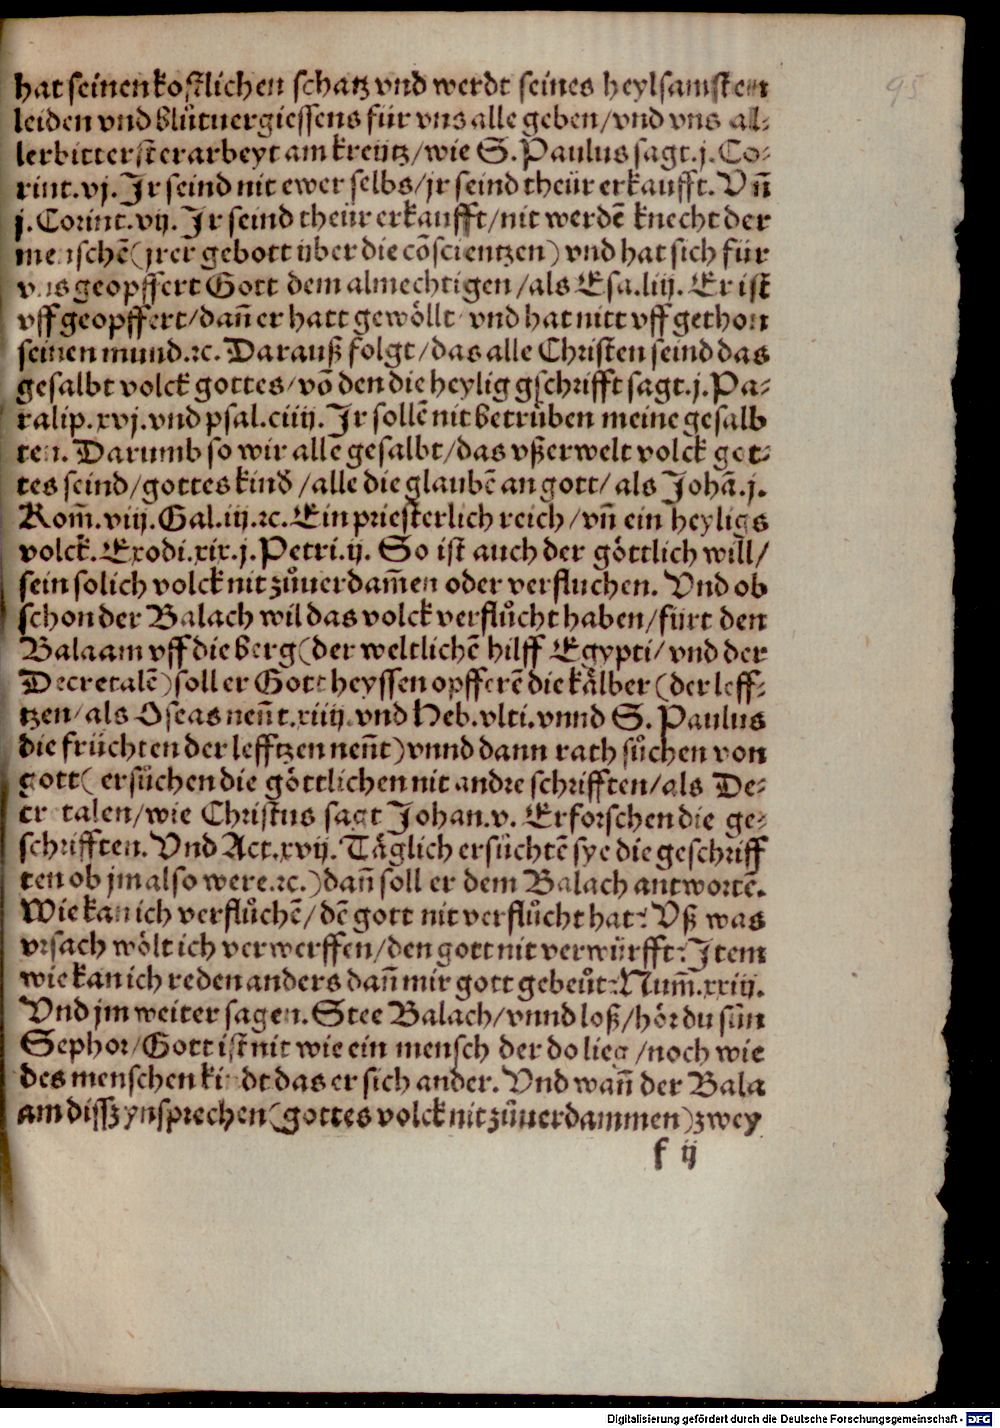 95
hat seinen kostlichen schatz vnd werdt seines heylsamsten
leiden vnd blůtuergiessens für vns alle geben/vnd vns al⸗
lerbitterster arbeyt am kreütz/wie S. Paulus sagt.j. Co⸗
rint.vj. Jr seind nit ewer selbs/jr seind theür erkaufft. Vñ
j. Corint.vij. Jr seind theür erkaufft/nit werdē knecht der
menschē(jrer gebott über die cōscientzen) vnd hat sich für
vns geopffert Gott dem almechtigen/als Esa.liij. Er ist
vff geopffert/dañ er hatt gewöllt vnd hat nitt vff gethon
seinen mund.ꝛc. Darauß folgt/das alle Christen seind das
gesalbt volck gottes/vō den die heylig gschrifft sagt.j. Pa⸗
ralip.xvj.vnd psal.ciiij. Jr sollē nit betrüben meine gesalb
ten. Darumb so wir allē gesalbt/das vßerwelt volck got⸗
tes seind/gottes kind/alle die glaubē an gott/als Johā.j.
Rom̄.viij.Gal.iij.ꝛc.Ein priesterlich reich/vñ ein heyligs
volck. Exodi.xix.j.Petri.ij. So ist auch der göttlich will/
sein solich volck nit zůuerdam̄en oder verfluchen. Vnd ob
schon der Balach wil das volck verflůcht haben/fürt den
Balaam vff die berg(der weltlichē hilff Egypti/vnd der
Decretalē)soll er Gott heyssen opfferē die kälber(der leff⸗
tzen/als Oseas neñt.xiiij.vnd Heb.vlti.vnnd S. Paulus
die früchten der lefftzen neñt)vnnd dann rath sůchen von
gott( ersůchen die göttlichen nit andre schrifften/als De⸗
cretalen/wie Christus sagt Johan.v. Erforschen die ge⸗
schrifften. Vnd Act.xvij. Täglich ersůchtē sye die geschriff
ten ob jm also were.ꝛc.)dañ soll er dem Balach antwortē.
Wie kan ich verflůchē/dē gott nit verflůcht hat? Vß was
vrsach wölt ich verwerffen/den gott nit verwürfft? Jtem
wie kan ich reden anders dañ mir gott gebeüt? Num̄.xxiij.
Vnd jm weiter sagen. Stee Balach/vnnd loß/hör du sun
Sephor/Gott ist nit wie ein mensch der do lieg/noch wie
des menschen kindt das er sich ander. Vnd wañ der Bala
am disß ynsprechen(gottes volck nit zůuerdammen)zwey
f ij
Digitalisierung gefördert durch die Deutsche Forschungsgemeinschaft - DFG